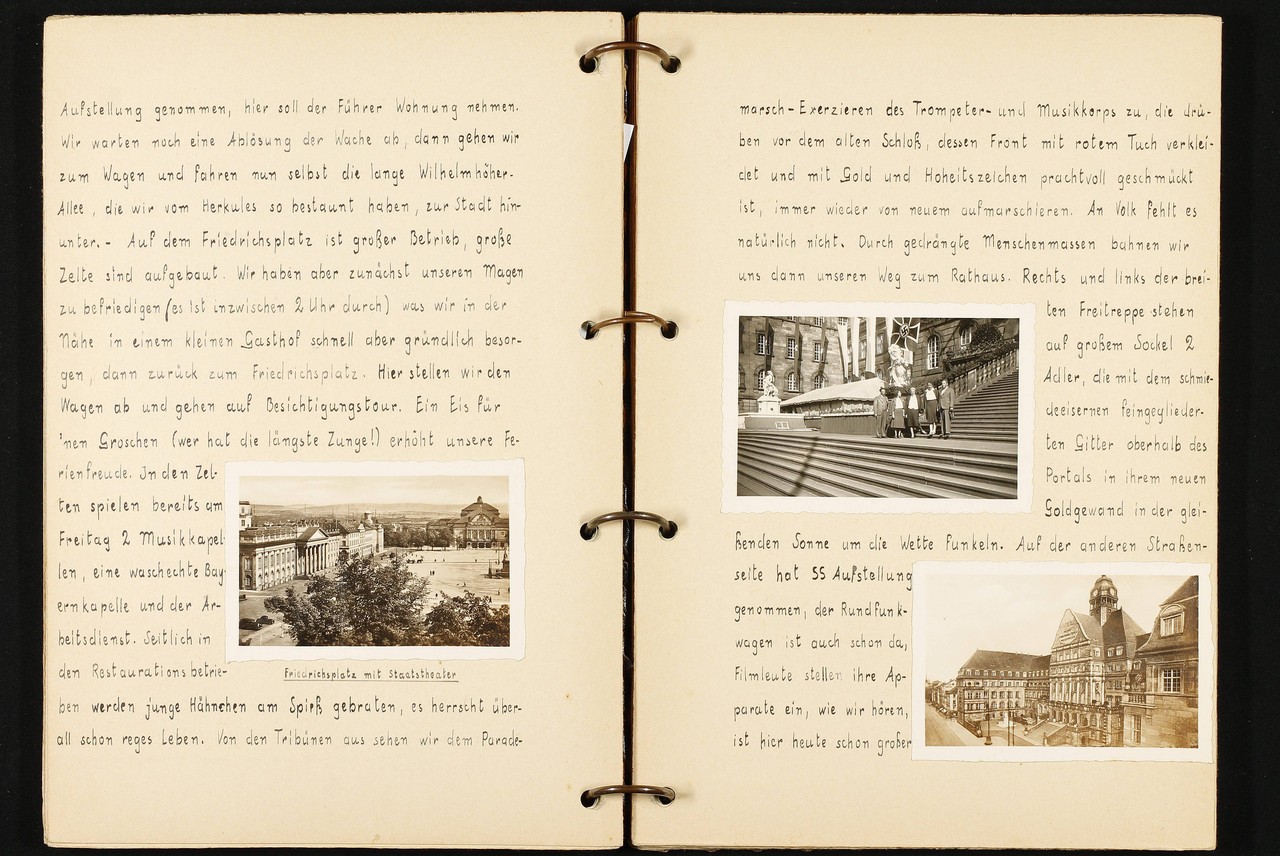 Aufstellung genommen, hier soll der Führer Wohnung nehmen.
Wir warten noch eine Ablösung der Wache ab, dann gehen wir
zum Wagen und fahren nun selbst die lange Wilhelmhöher-
Allee, die wir vom Herkules so bestaunt haben, zur Stadt hin-
unter.- Auf dem Friedrichsplatz ist großer Betrieb, große
Zelte sind aufgebaut. Wir haben aber zunächst unseren Magen
zu befriedigen (es ist inzwischen 2 Uhr durch) was wir in der
Nähe in einem kleinen Gasthof schnell aber gründlich besor-
gen, dann zurück zum Friedrichsplatz. Hier stellen wir den
Wagen ab und gehen auf Besichtigungstour. Ein Eis für
'nen Groschen (wer hat die längste Zunge!) erhöht unsere Fe-
rienfreude. In den Zel-
ten spielen bereits am
Freitag 2 Musikkapel-
len, eine waschechte Bay-
ernkapelle und der Ar-
beitsdienst. Seitlich in
den Restaurationsbetrie-
Friedrichsplatz mit Staatstheater
ben werden junge Hähnchen am Spieß gebraten, es herrscht über-
all schon reges Leben. Von den Tribünen aus sehen wir dem Parade-
marsch-Exerzieren des Trompeter- und Musikkorps zu, die drü-
ben vor dem alten Schloß, dessen Front mit rotem Tuch verklei-
det und mit Gold und Hoheitszeichen prachtvoll geschmückt
ist, immer wieder von neuem aufmarschieren. An Volk fehlt es
natürlich nicht. Durch gedrängte Menschenmassen bahnen wir
uns dann unseren Weg zum Rathaus. Rechts und links der brei-
ten Freitreppe stehen
auf großem Sockel 2
Adler, die mit dem schmie-
deeisernen feingeglieder-
ten Gitter oberhalb des
Portals in ihrem neuen
Goldgewand in der glei-
ßenden Sonne um die Wette funkeln. Auf der anderen Straßen-
seite hat SS Aufstellung
genommen, der Rundfunk-
wagen ist auch schon da,
Filmleute stellen ihre Ap-
parate ein, wie wir hören,
ist hier heute schon großer